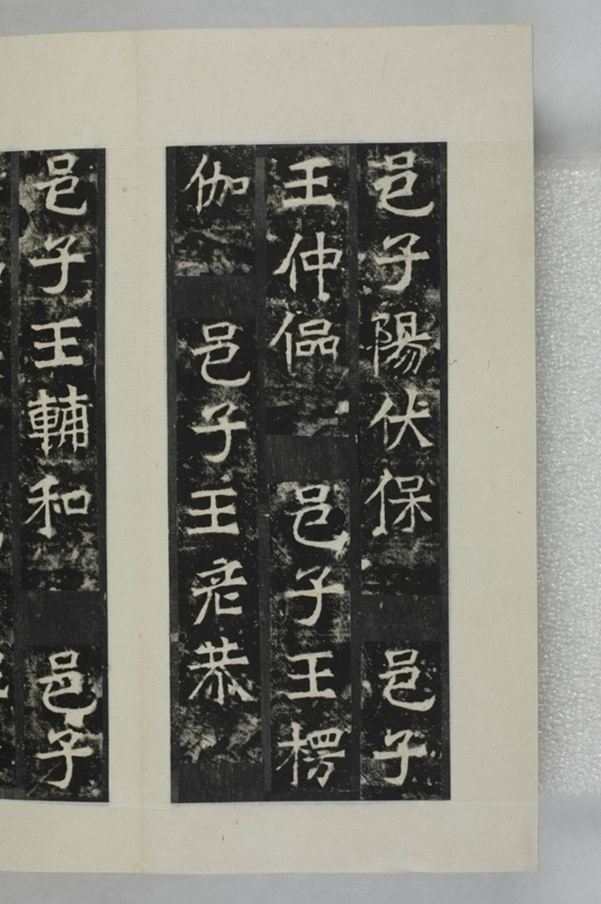 邑子陽伏保 邑子
王仲偘 邑子王楞
伽 邑子王老恭
邑子王輔和 邑子